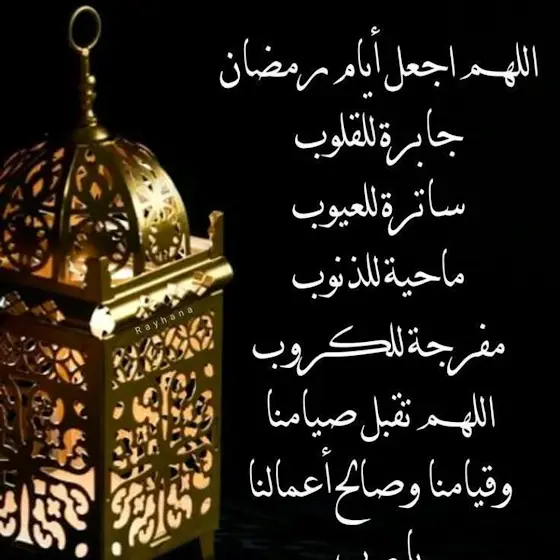 اللهم اجعل أيام رمضان
جابرة للقلوب
ساترة للعيوب
ماحية للذنوب
مفرجة للكروب
اللهم تقبل صيامنا
وقيامنا وصالح أعمالنا
Rayhana